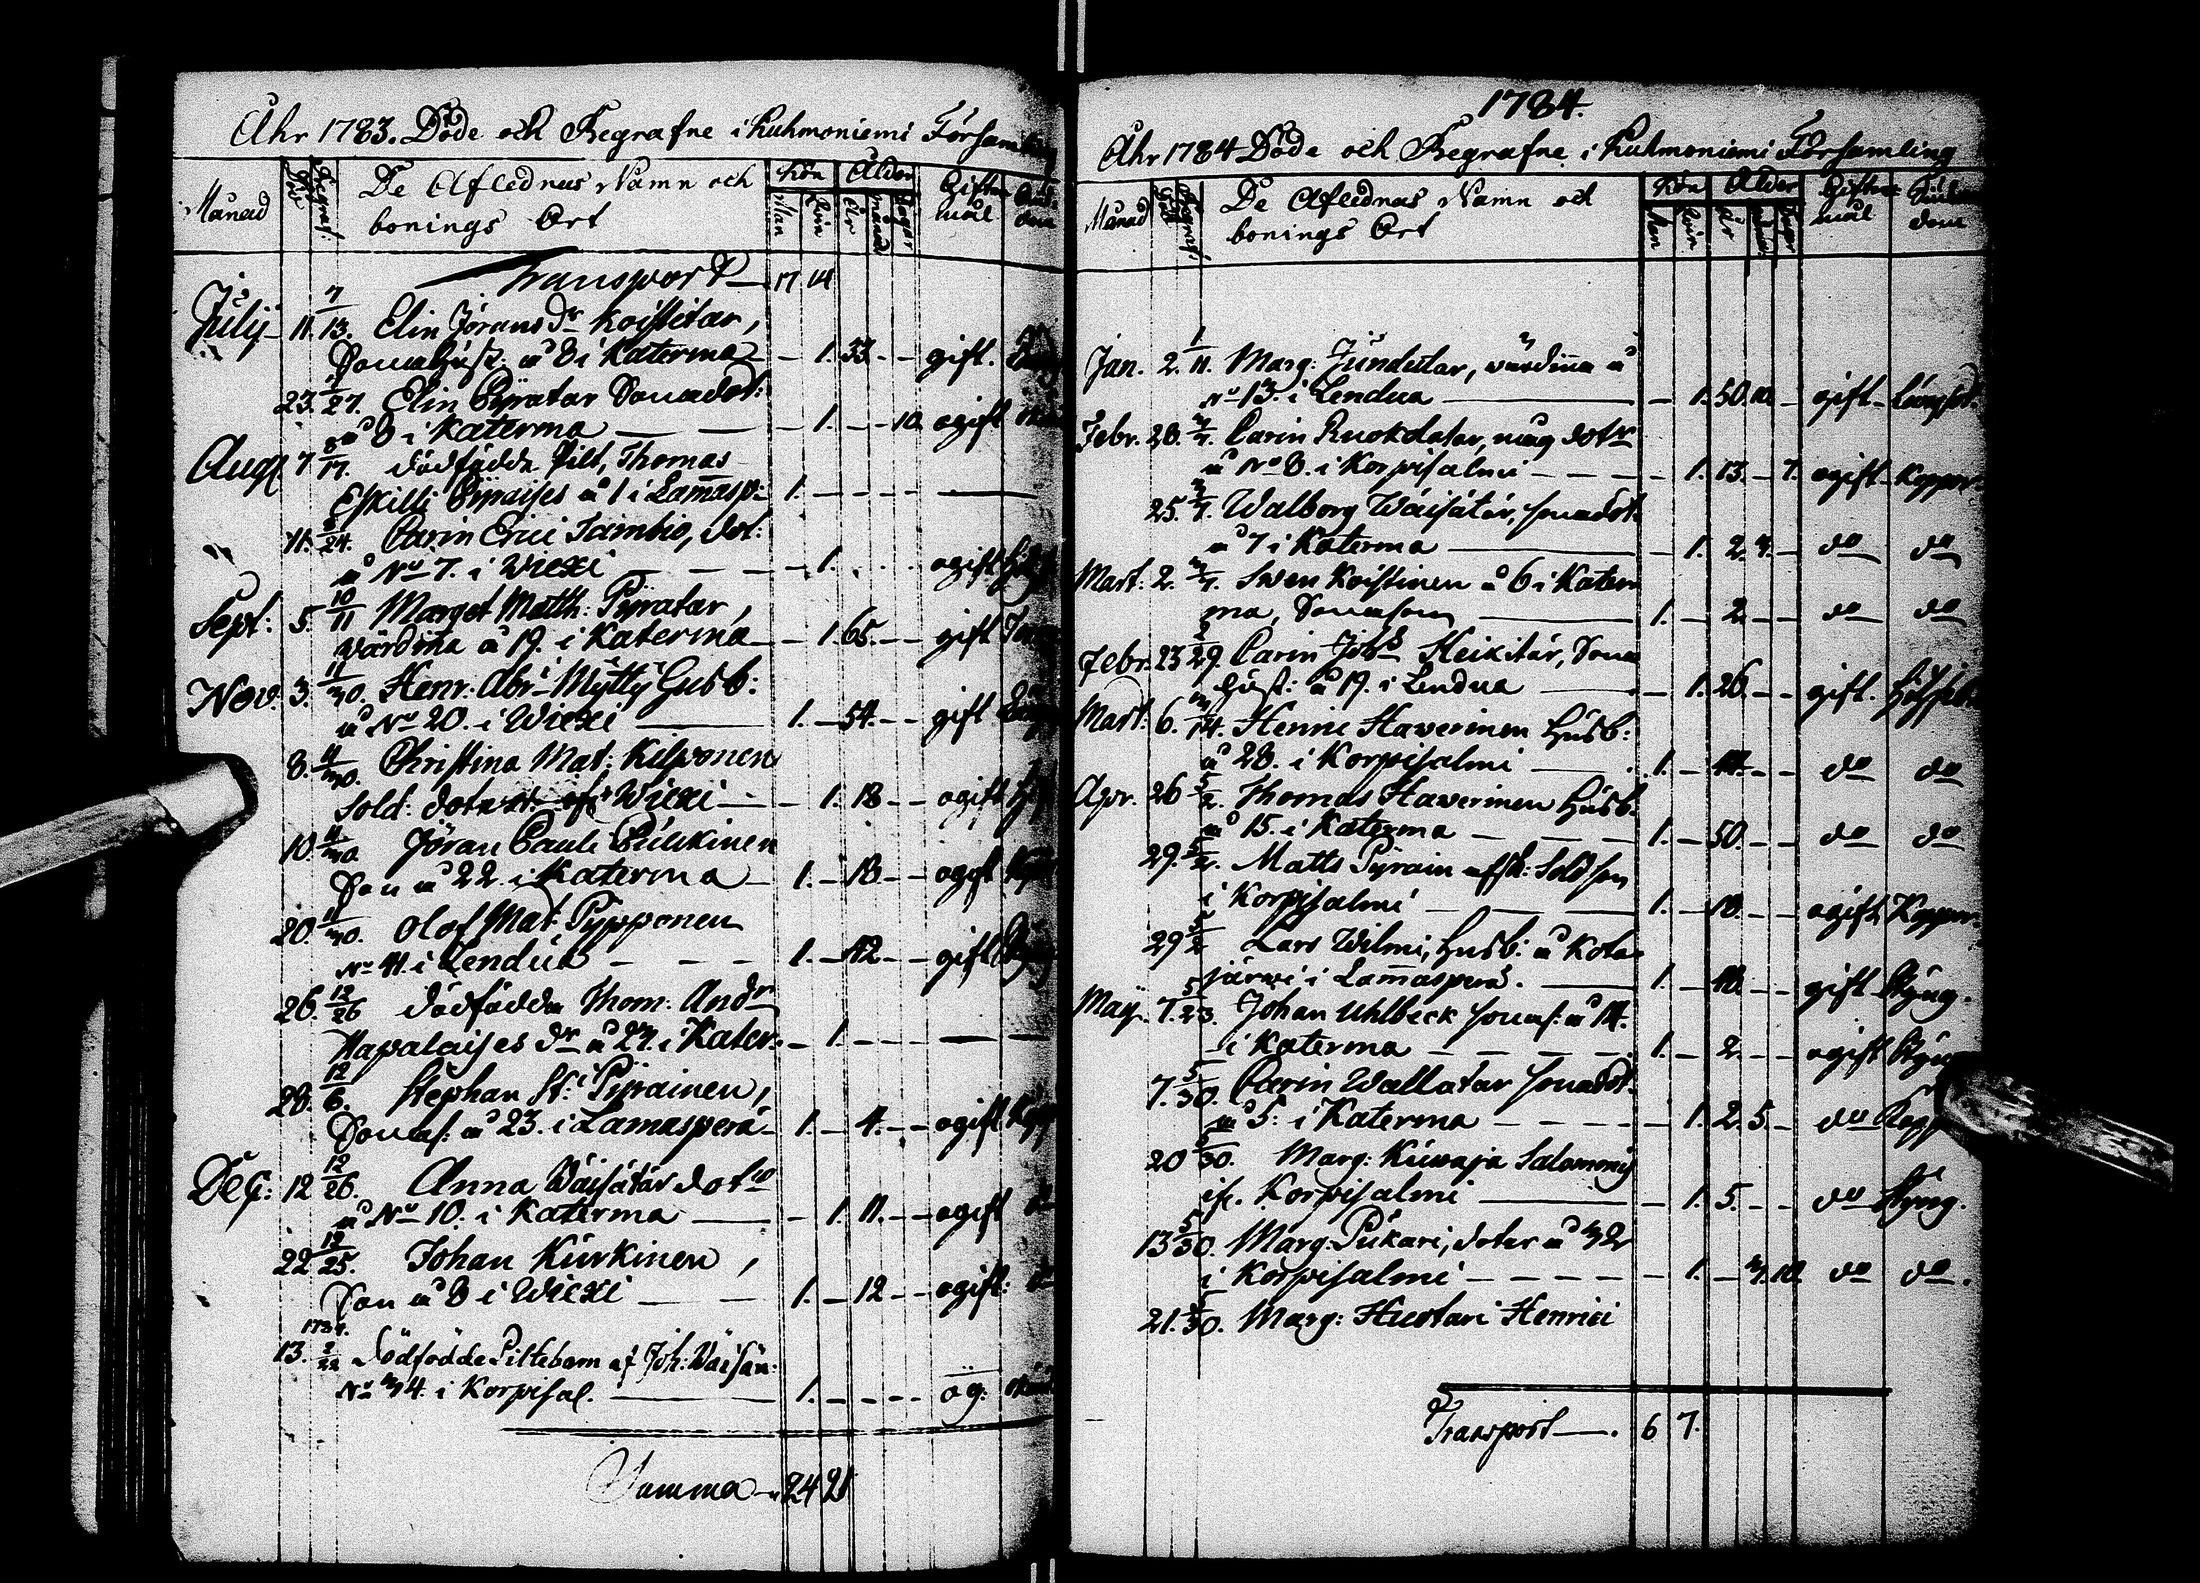 Åhr 1783. Döde och Begrafne i Kuhmoniemi Församling
Månad Död Begraf: De Aflednas Namn och bonings Ort Kön Man Kön Ålder År månad dagar Giftermål
Transport 17 14
July 11. 7/13. Elin Jörans Dr Koistitar,
Sonahust: å 8 i Katerma — 1. 33. — — gift.
23. 7/27. Elin Pyratar Sonadot:
å 8 i Katerma — — — 1. — — 10. ogift
Aug 7 8/17. dödfödde Pilt, Thomas
Eskilli Pyräises å 1 i Lam̄asp: 1. — — — —
11. 8/24. Carin Erici Tambio, dot:
å No 7. i Wiexi — — — 1. ogift
Sept: 5. 10/11 Marget Matth: Pyratar,
värdin̄a å 19. i Katerma — 1. 65. — — gift
Nov. 3. 11/30. Henr: Abr: Mytty Husb:
å No 20. i Wiexi — 1. — 54. — — gift
8. 11/30. Christina Mat: Kilponen
Sold: doter Wiexi — — 1. 18 — — ogift
10. 11/30 Jöran Pauli Piilikinen
Son å 22. i Katerma — 1. — 18. — — ogift
20. 11/30. Olof Mat: Pypponen
No 41. i Lendua — — — 1. — 42. — — gift
26. 12/26 dödfödda Thom: Andr
Hapalaises dr å 27. i Kater: — 1. — — — —
28. 12/6. Stephan St: Pyrainen,
Sonas: å 23. i Lamasperä — 1. — 4. — — ogift
Dec: 12 12/26. Anna Väisätär dotr
å No 10. i Katerma — — 1. 11. — — ogift
22. 12/25. Johan Kurkinen,
Son å 8 i Wiexi — — 1. — 12 — — ogift:
1784.
13. 2/22 Dödfödde Piltebarn af Joh: Väisän:
No 34 i Korpisal. — 1. — — — — og:
Summa — 24 21
1784.
Åhr 1784 Döde och Begrafne i Kuhmoniemi Församling
Månad Död Begraf: De Aflednas Namn och bonings Ort Kön Man Kön Ålder År Giftermål Siukdom
Jan. 2. 1/11. Marg: Jundutar, värdin̄a å
No 13. i Lendua — — 1. 50. 10. — gift —
Febr. 28. 3/7. Carin Ruokolatar, dotr
å No 8. i Korpisalmi — — — — 1. 13. — 7. ogift — Koppor
25. 3/7. Walborg Väisätär, sonadot:
å 7 i Katerma — — 1. 2. 3. — do do
Mart: 2. 3/7. Swen Koistinen å 6 i Kater
ma, Sonason — 1. — 2. — — do do
Febr. 23 2/29. Carin Johs Heikitär, Sona
hust: å 19. i Lendua — — 1. 26. — — gift.
Mart: 6. 3/14. Henric Haverinen Husb:
å 28. i Korpisalmi — 1. — 44. — — do do
Apr. 26 5/2. Thomas Haverinen Husb:
å 15. i Katerma — — — 1. — 50. — — do do
29. 5/2. Matts Pyrain afsk: Sold son
i Korpisalmi — — — 1. — 18. — — ogift Koppor
29 5/2 Lars Wilmi, Husb: å Kota
järwi i Lam̄asperä. — 1. — 40. — — gift Styng.
May. 7. 5/23. Johan Uhlbeck sonas: å 14.
i Katerma — — — — — 1. — 2. — — ogift
7. 5/30. Carin Wallatar sonadot:
å 5. i Katerma — — — — — 1. 2. 5. — do
20 5/30. Marg: Kuwaja Salomonis
i Korpisalmi — — 1. 5. — — do Styng.
13 5/30. Marg: Pukari, doter å 32
i Korpisalmi — — — — — — 1. — 3. 10. do do.
21. 5/30. Marg: Huotari Henrici
Transport — . 6 7.